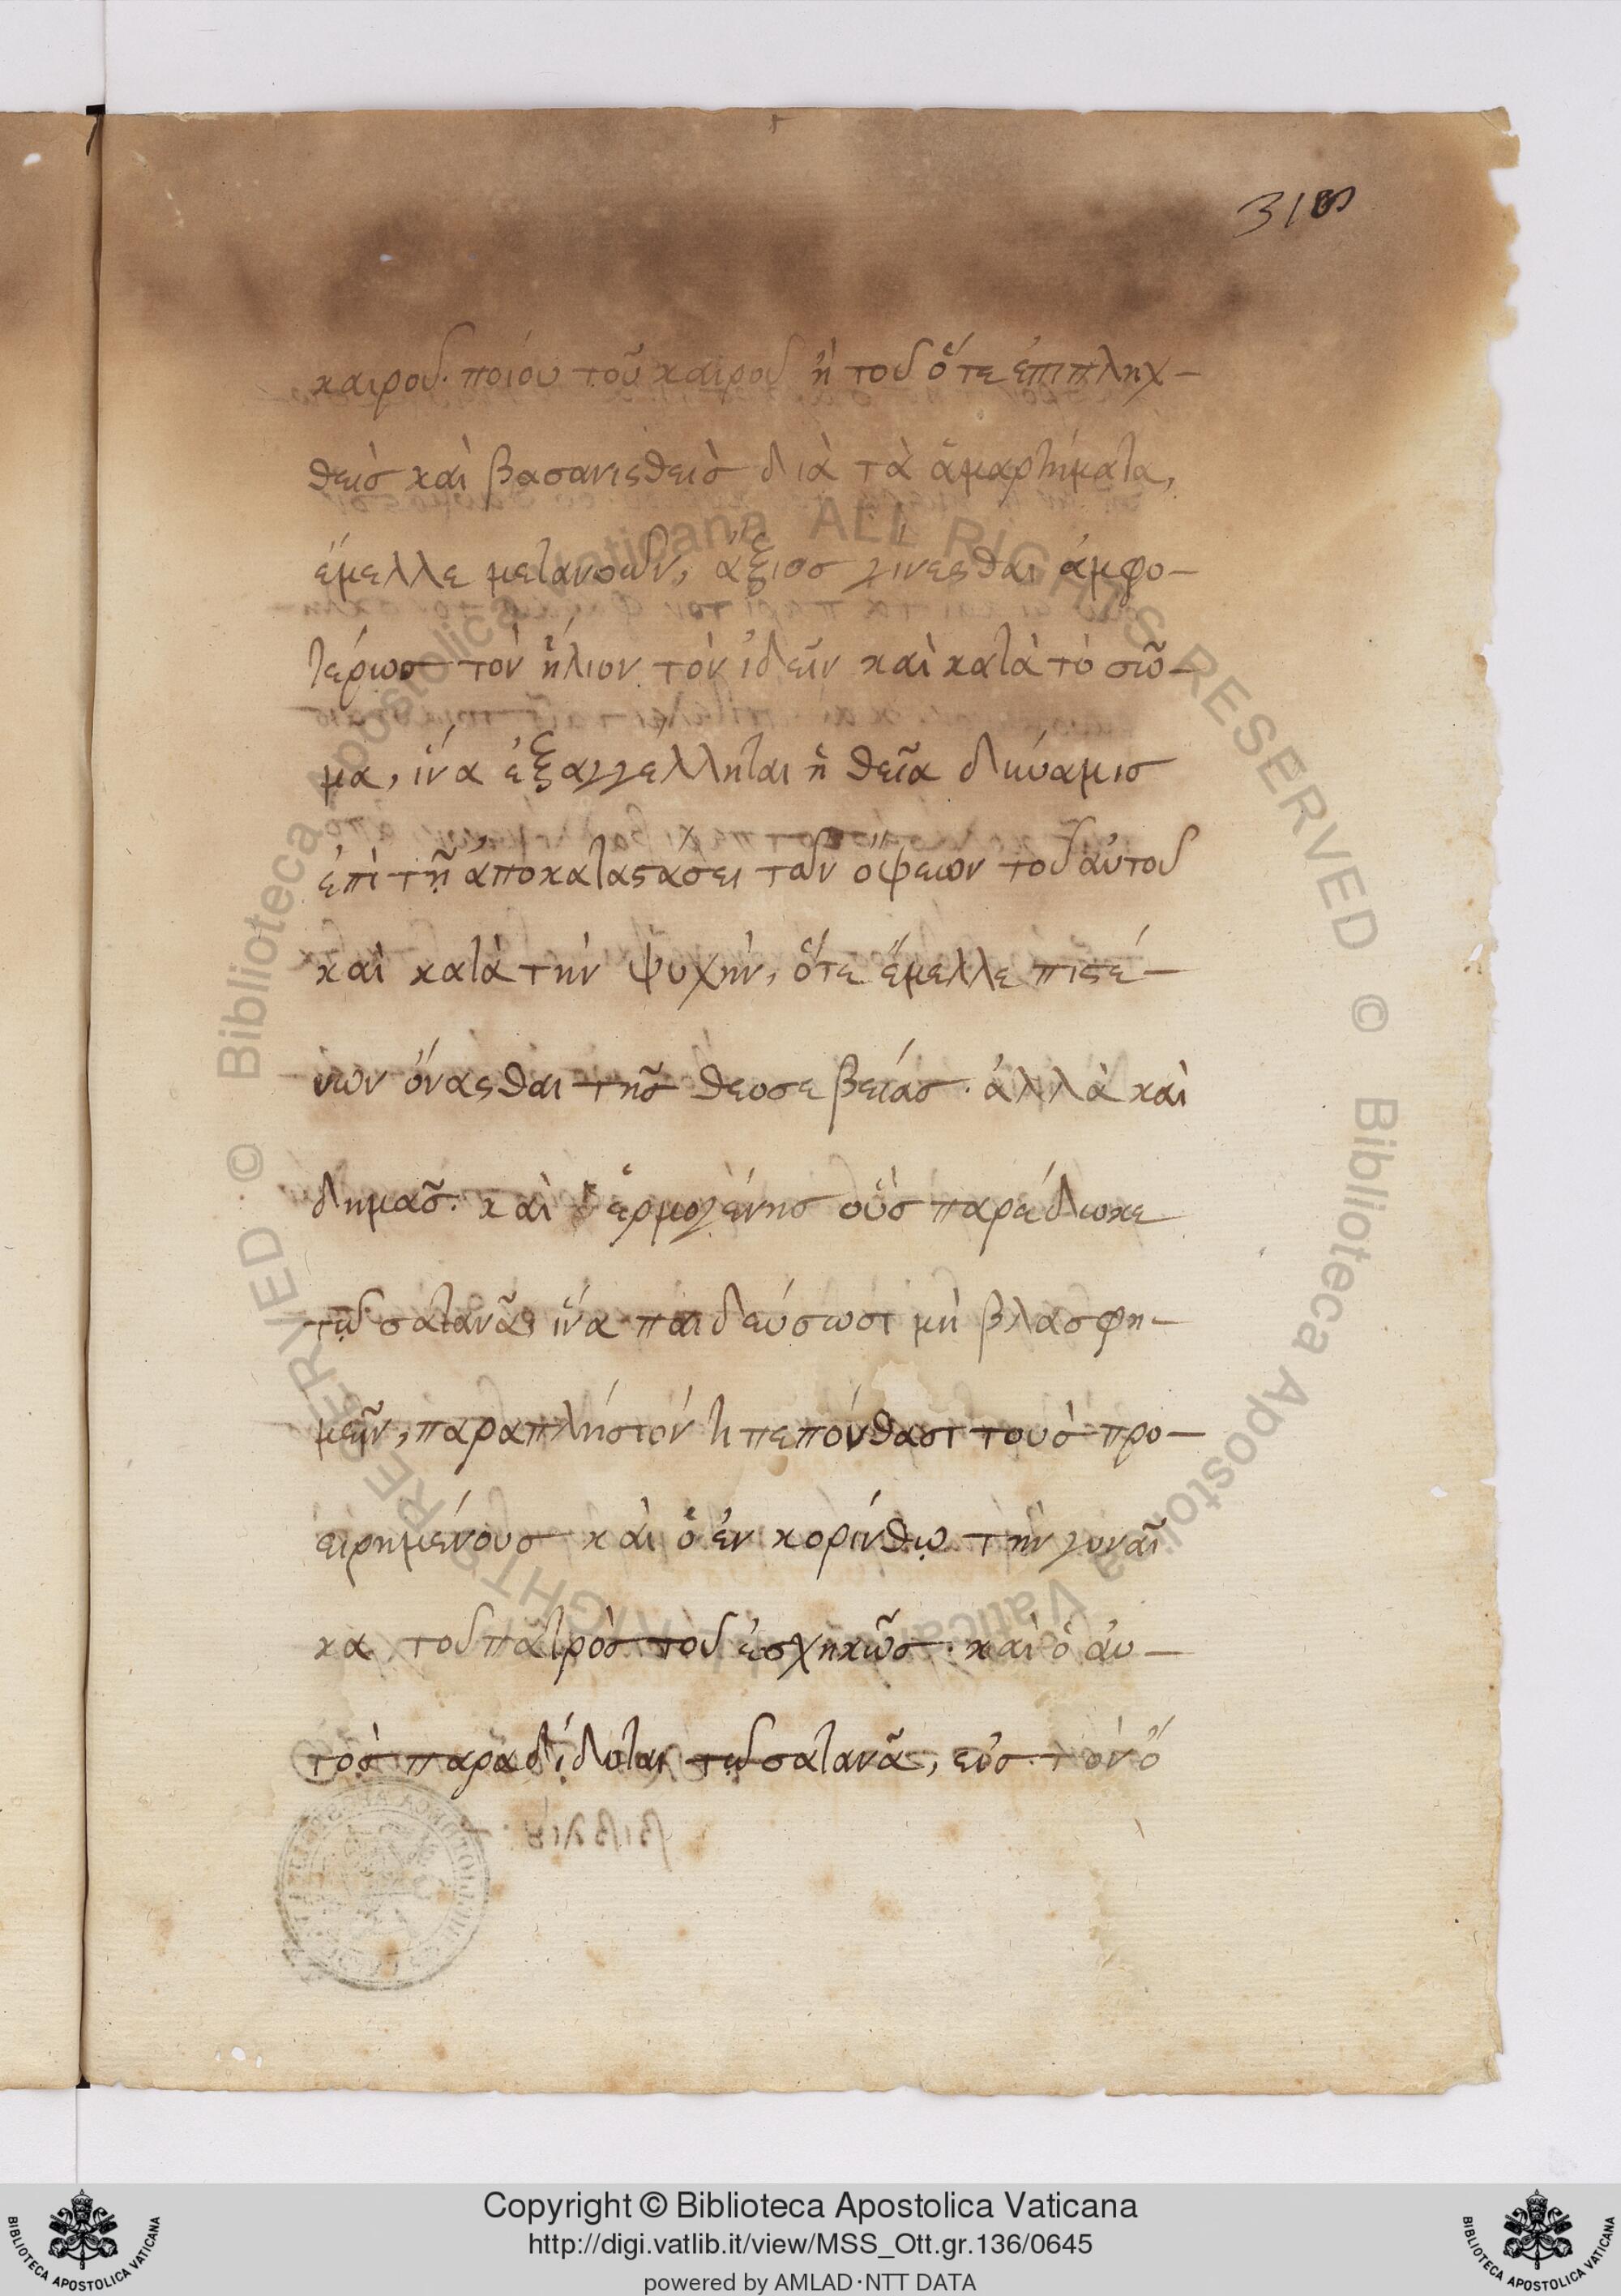 318
καιροῦ· ποίου τοῦ καιροῦ ἢ τοῦ ὅτε ἐπιπληχ-
θεὶς καὶ βασανισθεὶς διὰ τὰ ἁμαρτήματα,
ἔμελλε μετανοῶν, ἄξιος γίνεσθαι ἀμφο-
τέρως τὸν ἥλιον τὸν ἰδεῖν καὶ κατὰ τὸ σῶ-
μα, ἵνα ἐξαγγέλληται ἡ θεῖα δύναμις
ἐπὶ τῇ ἀποκαταστάσει τῶν ὄψεων τοῦ αὐτοῦ
καὶ κατὰ τὴν ψυχὴν, ὅτε ἔμελλε πιστέ-
υων ὄνασθαι τῆς θεοσεβείας· ἀλλὰ καὶ
δημᾶς· καὶ ἑρμογένης οὓς παρέδωκε
τῷ σατανᾷ ἵνα παιδεύσωσι μὴ βλασφη-
μεῖν, παραπλήσιόν τι πεπόνθασι τοὺς προ-
ειρημένους καὶ ὁ ἐν κορίνθῳ τὴν γυναῖ
κα τοῦ πατρὸς τοῦ ἐσχηκῶς· καὶ ὁ αὐ-
τὸς παραδίδοται τῷ σατανᾷ, εὐσ τὸν ὄ
Copyright © Biblioteca Apostolica Vaticana
http://digi.vatlib.it/view/MSS_Ott.gr.136/0645
powered by AMLAD·NTT DATA
BIBLIOTECA APOSTOLICA VATICANA
BIBLIOTECA APOSTOLICA VATICANA
© Biblioteca Apostolica Vaticana ALL RIGHTS RESERVED © Biblioteca Apostolica Vaticana ALL RIGHTS RESERVED